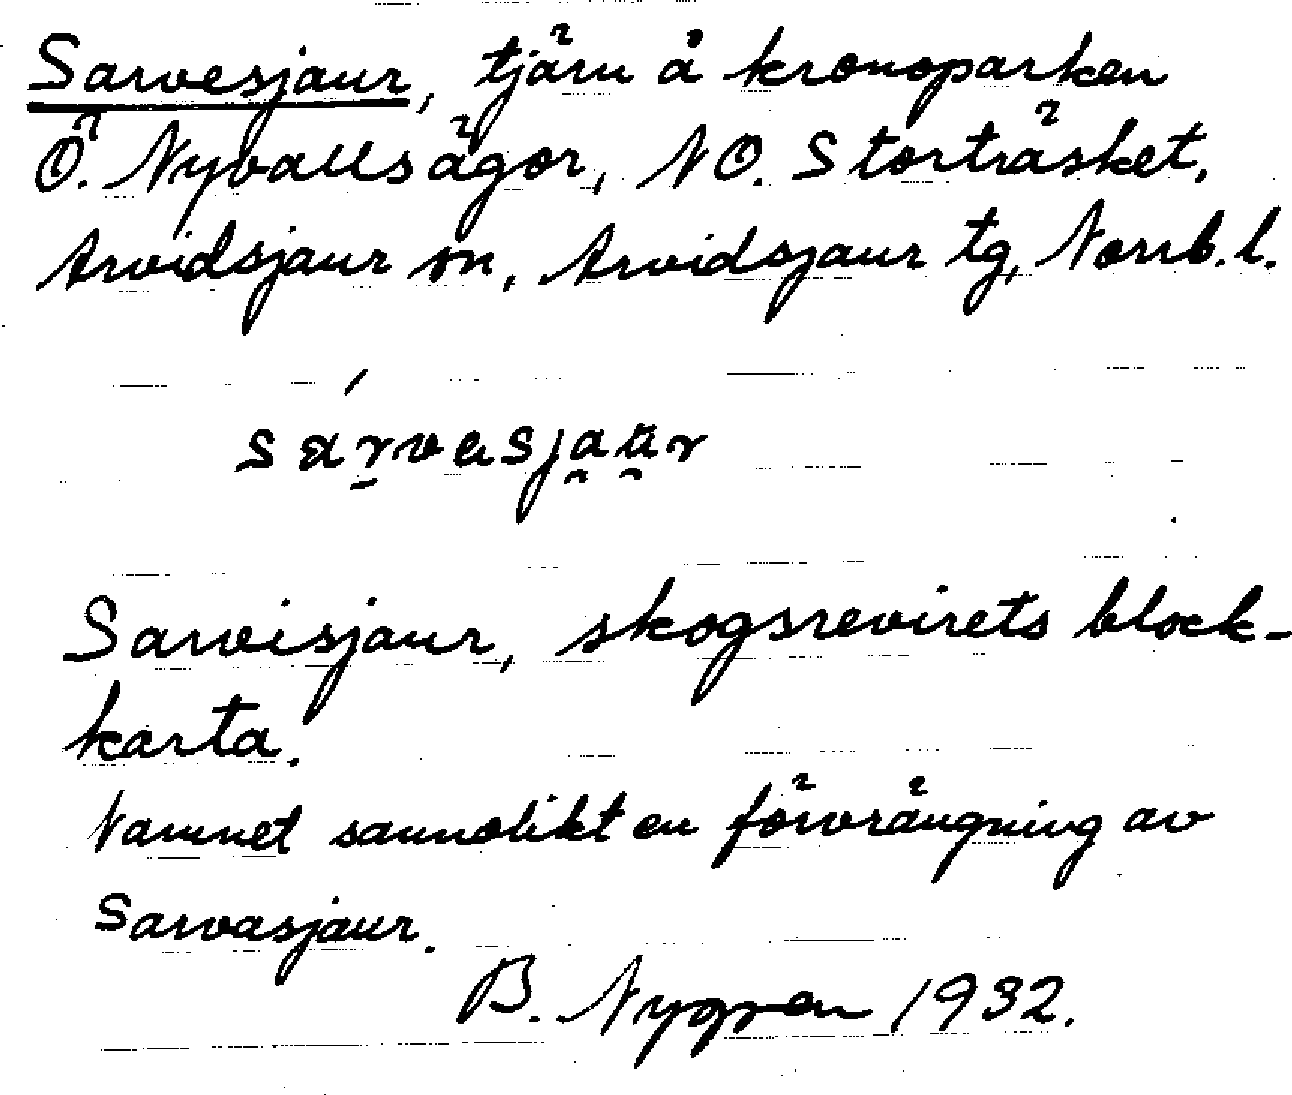 Sarvesjaur, tjärn å kronoparken
Ö. Nyvallsägor, NO. Storträsket,
Arvidsjaur sn, Arvidsjaur tg, Norrb. l.
sárvasjaur
Sarvisjaur, skogsrevirets block-
karta.
Namnet sannolikt en förvrängning av
Sarvasjaur.
B. Nygren 1932.